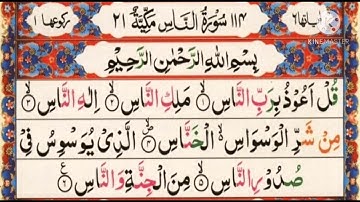 ١١٤ سُوْرَةُ النَّاسِ مَكِّيَّةٌ ٢١
اٰيَاتُهَا ٦
رُكُوْعُهَا ١
KINEMASTER
بِسْمِ اللّٰهِ الرَّحْمٰنِ الرَّحِيْمِ
قُلْ اَعُوْذُ بِرَبِّ النَّاسِ ۙ﴿١﴾ مَلِكِ النَّاسِ ۙ﴿٢﴾ اِلٰهِ النَّاسِ ۙ﴿٣﴾
مِنْ شَرِّ الْوَسْوَاسِ ۙ۬ الْخَنَّاسِ ۪ۙ﴿٤﴾ الَّذِيْ يُوَسْوِسُ فِيْ
صُدُوْرِ النَّاسِ ۙ﴿٥﴾ مِنَ الْجِنَّةِ وَ النَّاسِ ﴿٦﴾ ع